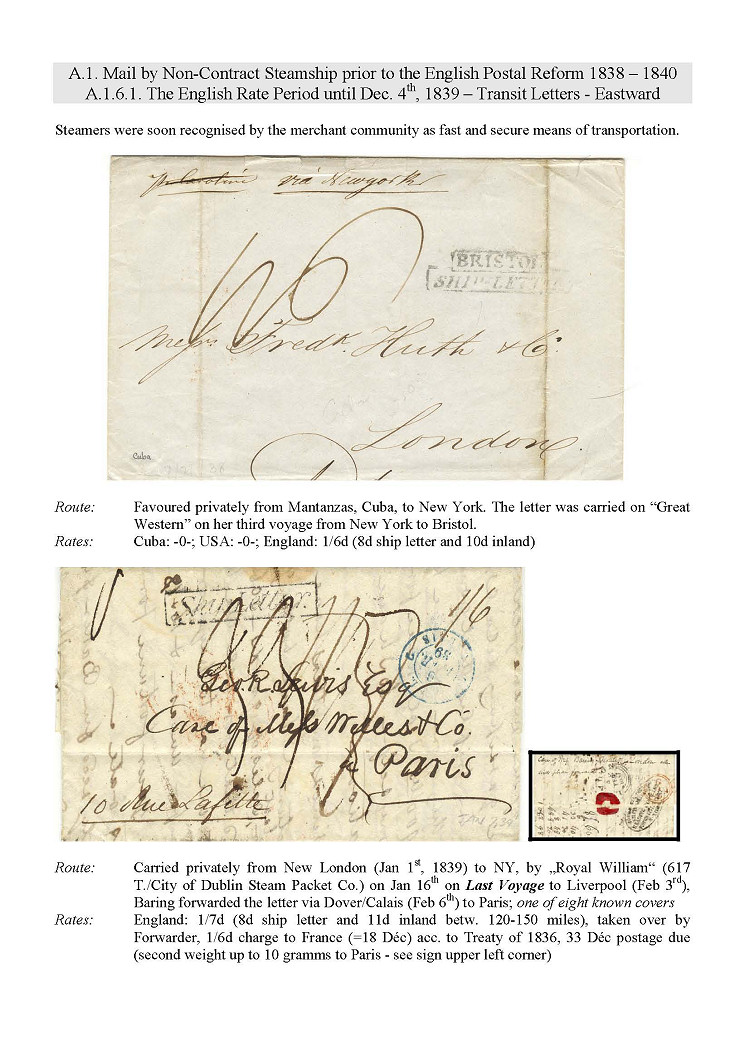 A.1. Mail by Non-Contract Steamship prior to the English Postal Reform 1838 – 1840
A.1.6.1. The English Rate Period until Dec. 4th, 1839 – Transit Letters - Eastward
Steamers were soon recognised by the merchant community as fast and secure means of transportation.
via Newyork
BRISTOL
SHIP-LETTER
Messrs Fredk. Huth & Co.
London
Cuba
Route: Favoured privately from Mantanzas, Cuba, to New York. The letter was carried on “Great
Western” on her third voyage from New York to Bristol.
Rates: Cuba: -0-; USA: -0-; England: 1/6d (8d ship letter and 10d inland)
Ship Letter.
1/6
Esq
Care of Mess Welles & Co.
Paris
10 Rue Lafitte
Route: Carried privately from New London (Jan 1st, 1839) to NY, by „Royal William“ (617
T./City of Dublin Steam Packet Co.) on Jan 16th on Last Voyage to Liverpool (Feb 3rd),
Baring forwarded the letter via Dover/Calais (Feb 6th) to Paris; one of eight known covers
Rates: England: 1/7d (8d ship letter and 11d inland betw. 120-150 miles), taken over by
Forwarder, 1/6d charge to France (=18 Déc) acc. to Treaty of 1836, 33 Déc postage due
(second weight up to 10 gramms to Paris - see sign upper left corner)